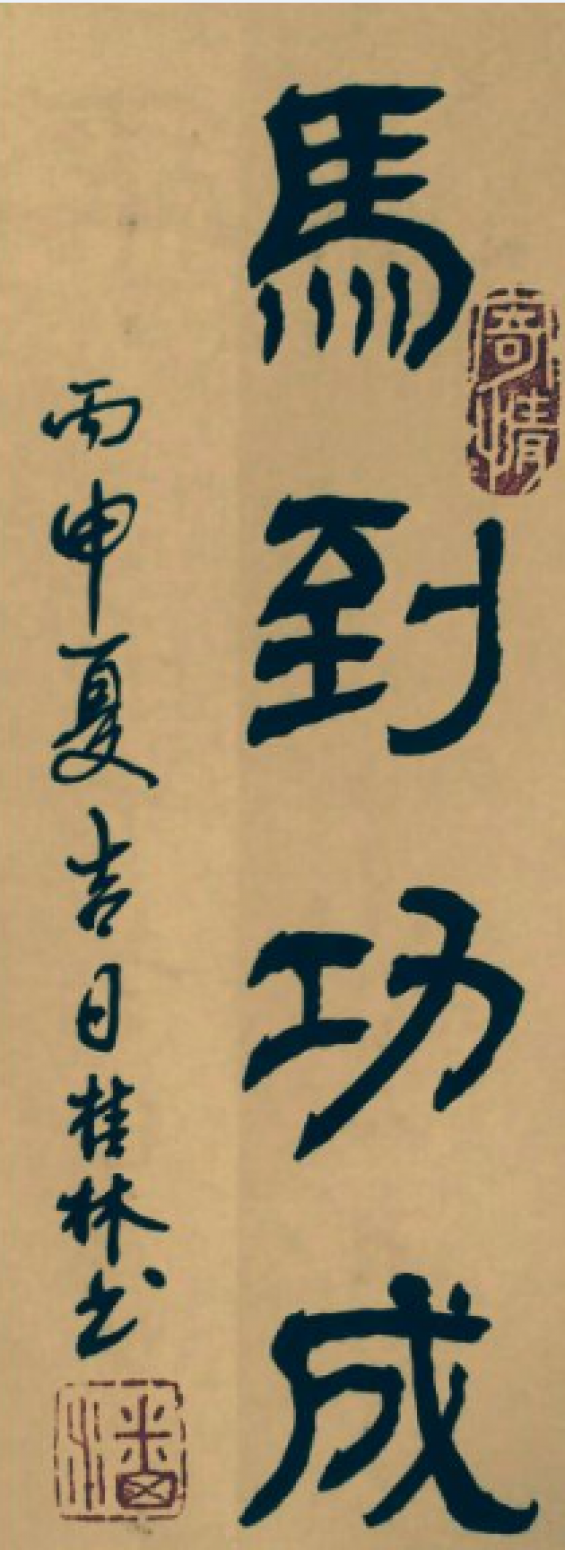 馬到功成
寄情
丙申夏吉日桂林书
潘